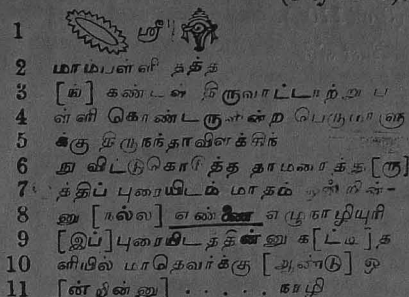 1 ஶ்ரீ
2 மாம்பள்ளி தத்த
3 [ங்] கண்டன் திருவாட்டாற்றுப
4 ள்ளி கொண்டருளின்ற பெருமாளு
5 க்கு திருநந்தாவிளக்கிந்
6 று விட்டுகொடுத்த தாமரைத்த[ரு]
7 த்திப் புரையிடம் மாதம் ஒன்றின்-
8 னு [நல்ல] எண்ணை எழுநாழியுரி
9 [இப்]புரையிடத்தின்னு க[ட்டி]த
10 ளியில் மாதெவர்க்கு [ஆண்டு] ஒ
11 [ன்றின்னு] . . . . . நாழி